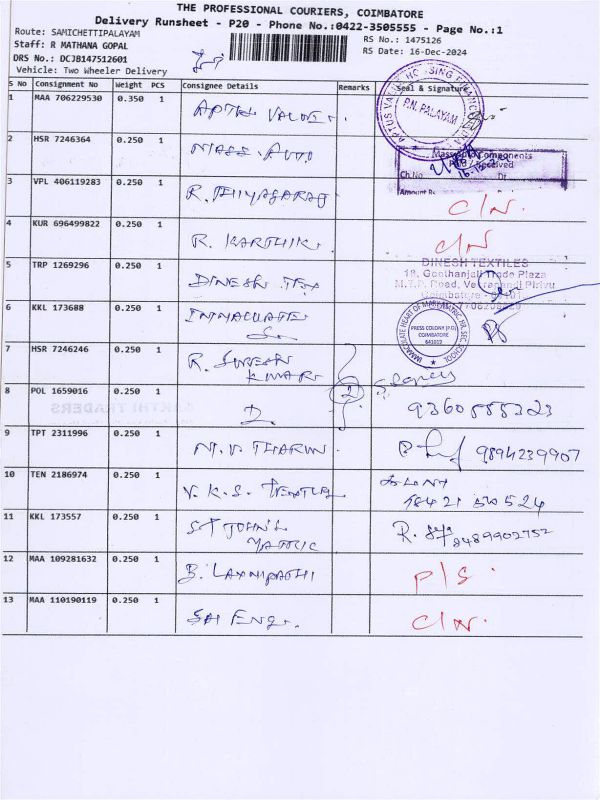 THE PROFESSIONAL COURIERS, COIMBATORE
Delivery Runsheet - P20 - Phone No.:0422-3505555 - Page No.:1
Route: SAMICHETTIPALAYAM
RS No.: 1475126
Staff: R MATHANA GOPAL
RS Date: 16-Dec-2024
DRS No.: DCJB147512601
Vehicle: Two Wheeler Delivery
S No Consignment No Weight PCS Consignee Details Remarks Seal & Signature
1 MAA 706229530 0.350 1
P.N. PALAYAM
2 HSR 7246364 0.250 1 MASS AUTO
Mass Auto Components
Ch.No.
3 VPL 406119283 0.250 1 R. THIYAGARAJ C/N.
4 KUR 696499822 0.250 1 R. KARTHIK C/N
5 TRP 1269296 0.250 1 DINESH TEX
DINESH TEXTILES
18, Geethanjali Trade Plaza
M.T.P. Road,
6 KKL 173688 0.250 1 IMMACULATE
IMMACULATE HEART OF MARY MATRIC. HR. SEC. SCHOOL
PRESS COLONY (P.O)
COIMBATORE
641019
7 HSR 7246246 0.250 1 R. SURESH
KUMAR
8 POL 1659016 0.250 1 2 9360555323
SAKTHI TRADERS
9 TPT 2311996 0.250 1 M.V. THARUN 9894239907
10 TEN 2186974 0.250 1 V.K.S.
11 KKL 173557 0.250 1 ST JOHN'S
MATRIC
R. 8489902752
12 MAA 109281632 0.250 1 P/S.
13 MAA 110190119 0.250 1 SAI ENG. C/N.